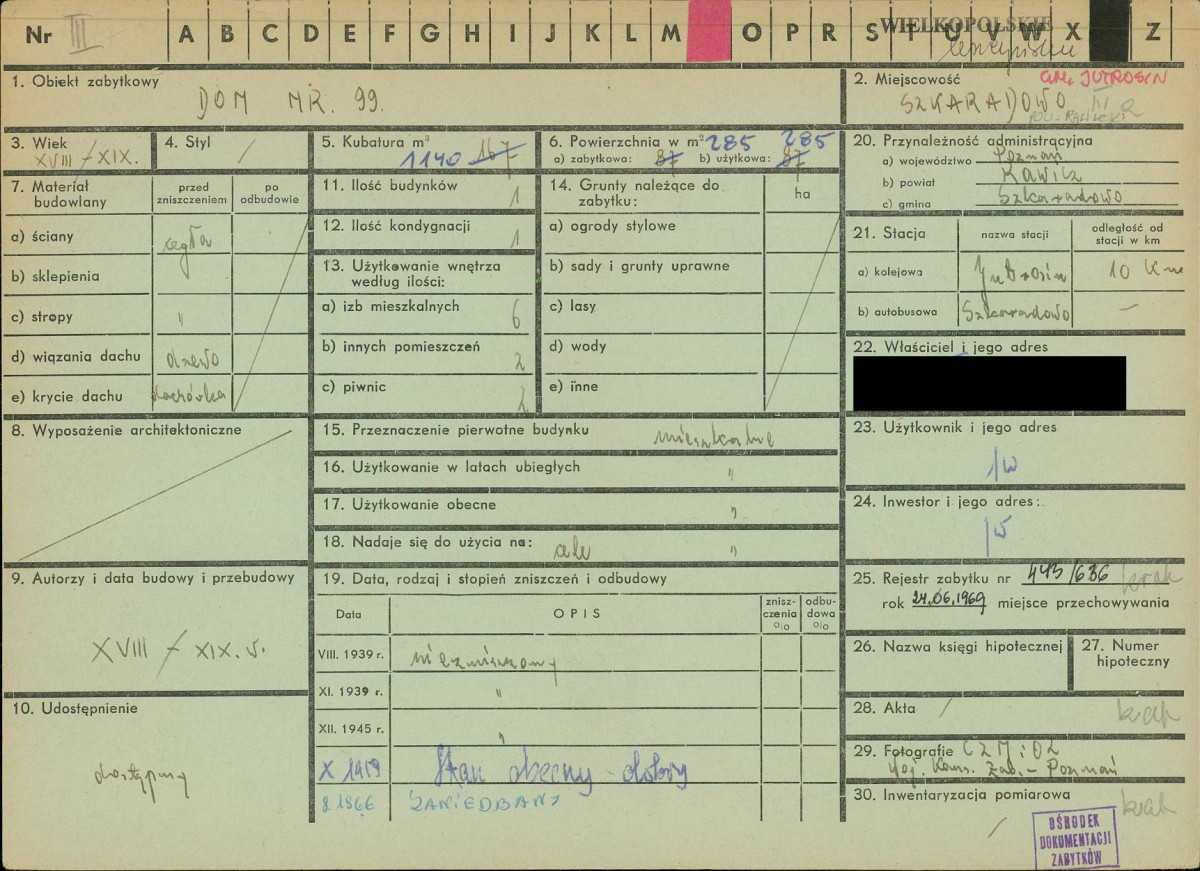 Nr III A B C D E F G H I J K L M O P R S T U V W X Z
WIELKOPOLSKIE
leszczyńskie
1. Obiekt zabytkowy
DOM NR. 99.
2. Miejscowość
GM. JUTROSIN
SZKARADOWO
POW. RAWICKI
3. Wiek
XVIII/XIX.
4. Styl /
5. Kubatura m³
1140 167
6. Powierzchnia w m² 285 285
a) zabytkowa: 87 b) użytkowa: 87
7. Materiał budowlany
przed zniszczeniem
po odbudowie
a) ściany cegła
b) sklepienia
c) stropy "
d) wiązania dachu drzewo
e) krycie dachu dachówka
8. Wyposażenie architektoniczne
9. Autorzy i data budowy i przebudowy
XVIII/XIX. w.
10. Udostępnienie
dostępny
11. Ilość budynków 1
12. Ilość kondygnacji 1
13. Użytkowanie wnętrza
według ilości:
a) izb mieszkalnych 6
b) innych pomieszczeń 2
c) piwnic 2
14. Grunty należące do
zabytku:
ha
a) ogrody stylowe
b) sady i grunty uprawne
c) lasy
d) wody
e) inne
15. Przeznaczenie pierwotne budynku mieszkalne
16. Użytkowanie w latach ubiegłych "
17. Użytkowanie obecne "
18. Nadaje się do użycia na: cele "
19. Data, rodzaj i stopień zniszczeń i odbudowy
Data
OPIS
znisz-czenia o/o
odbu-dowa o/o
VIII. 1939 r. niezniszczony
XI. 1939 r. "
XII. 1945 r. "
X 1959 Stan obecny - dobry
8.1966 ZANIEDBANY
20. Przynależność administracyjna
a) województwo Poznań
b) powiat Rawicz
c) gmina Szkaradowo
21. Stacja
nazwa stacji
odległość od stacji w km
a) kolejowa Jutrosin 10 Km
b) autobusowa Szkaradowo —
22. Właściciel i jego adres
23. Użytkownik i jego adres
jw
24. Inwestor i jego adres:
jw
25. Rejestr zabytku nr 443/636
brak
rok 24.06.1969 miejsce przechowywania
26. Nazwa księgi hipotecznej
27. Numer hipoteczny
28. Akta / brak
29. Fotografie CZMiOZ
Woj. Kons. Zab. - Poznań
30. Inwentaryzacja pomiarowa
brak
/
OŚRODEK
DOKUMENTACJI
ZABYTKÓW